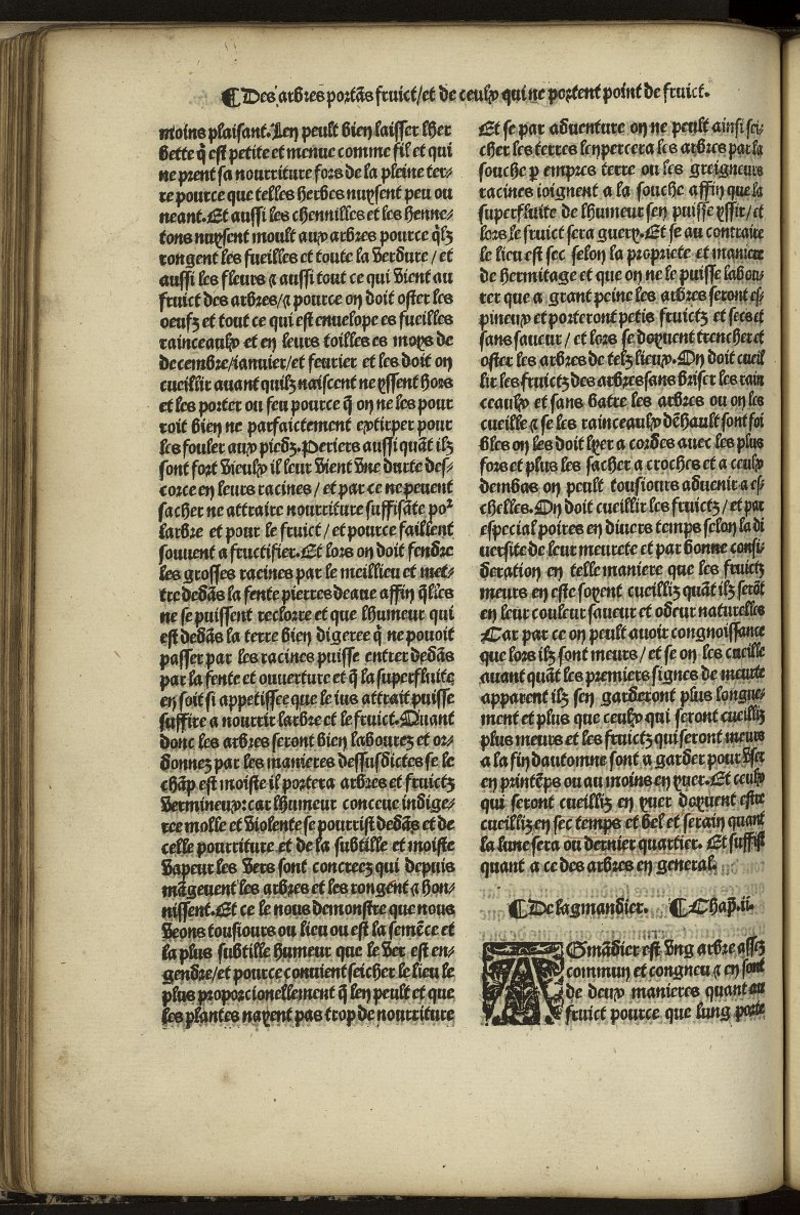 ¶ Des arbres portãs fruict/et de ceulx qui ne portent point de fruict.
moins plaisant. Len peult bien laisser lher
bette q̃ est petite et menue comme fil et qui
ne prent sa nourriture fors de la pleine ter-
re pource que telles herbes nuysent peu ou
neant. Et aussi les chennilles et les henne-
tons nuysent moult aux arbres pource q̃lz
rongent les fueilles et toute la verdure / et
aussi les fleurs ⁊ aussi tout ce qui vient au
fruict des arbres/⁊ pource on doit oster les
oeufz et tout ce qui est enuelope es fueilles
rainceaulx et en leurs toilles es moys de
decembre/ianuier/et feurier et les doit on
cueillir auant quilz naiscent ne yssent hors
et les porter ou feu pource q̃ on ne les pour
roit bien ne parfaictement extirper pour
les fouler aux piedz. Periers aussi quãt ilz
sont fort vieulx il leur vient vne durte des-
corce en leurs racines / et par ce ne peuent
sacher ne attraire nourriture suffisãte poꝰ
larbre et pour le fruict / et pource faillent
souuent a fructifier. Et lors on doit fendre
les grosses racines par le meillieu et met-
tre dedãs la fente pierres deaue affin q̃lles
ne se puissent reclorre et que lhumeur qui
est dedãs la terre bien digeree q̃ ne pouoit
passer par les racines puisse entrer dedãs
par la fente et ouuerture et q̃ la superfluite
en soit si appetissee que le ius attrait puisse
suffire a nourrir larbre et le fruict. Quant
donc les arbres seront bien labourez et or-
donnez par les manieres dessusdictes se le
chãp est moiste il portera arbres et fruictz
vermineux: car lhumeur conceue indige-
ree molle et violente se pourrist dedãs et de
celle pourriture et de la subtille et moiste
vapeur les vers sont concreez qui depuis
mãgeuent les arbres et les rongent ⁊ hon-
nissent. Et ce le nous demonstre que nous
veons tousiours ou lieu ou est la semẽce et
la plus subtille humeur que le ver est en-
gendre/et pource conuient seicher le lieu le
plus proporcionellement q̃ len peult et que
les plantes nayent pas trop de nourriture
Et se par aduenture on ne peult ainsi sei-
cher les terres len percera les arbres par la
souche p empres terre ou les greigneurs
racines ioignent a la souche affin que la
superfluite de lhumeur sen puisse yssir/et
lors le fruict sera guery. Et se au contraire
le lieu est sec selon la propriete et maniere
de hermitage et que on ne le puisse labou-
rer que a grant peine les arbres seront es-
pineux et porteront petis fruictz et secs et
sans saueur / et lors se doyuent trencher et
oster les arbres de telz lieux. On doit cueil
lir les fruictz des arbres sans briser les rain
ceaulx et sans batre les arbres ou on les
cueille ⁊ se les rainceaulx dẽhault sont foi
bles on les doit lyer a cordes auec les plus
fors et plus les sacher a croches et a ceulx
dembas on peult tousiours aduenir a es-
chelles. On doit cueillir les fruictz / et par
especial poires en diuers temps selon la di
uersite de leur meurete et par bonne consi-
deration en telle maniere que les fruictz
meurs en este soyent cueilliz quãt ilz serõt
en leur couleur saueur et odeur naturelles
Car par ce on peult auoir congnoissance
que lors ilz sont meurs / et se on les cueille
auant quãt les premiers signes de meurte
apparent ilz sen garderont plus longue-
ment et plus que ceulx qui seront cueilliz
plus meurs et les fruictz qui seront meurs
a la fin dautomne sont a garder pour vser
en printẽps ou au moins en yuer. Et ceulx
qui seront cueilliz en yuer doyuent estre
cueilliz en sec temps et bel et serain quant
la lune sera ou dernier quartier. Et suffist
quant a ce des arbres en general.
¶ De lagmandier. ¶ Chap. ii.
AGmãdier est vng arbre assez
commun et congneu ⁊ en sont
de deux manieres quant au
fruict pource que lung porte